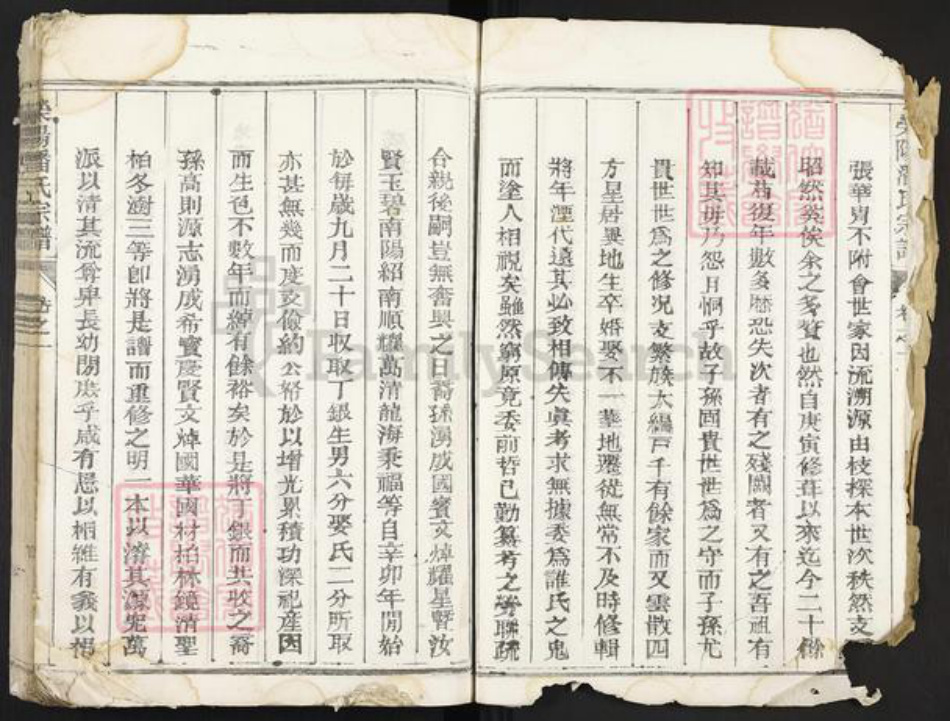 張華冑不附會世家因流溯源由枝探本世次秩然支
昭然奕俟余之多贅也然自庚寅修葺以來迄今二十餘
載若復年數多歷恐失次者有之殘闕者又有之吾祖有
知其毋乃怨且恫乎故子孫固貴世世爲之守而子孫尤
貴世世爲之修况支繁族大編戸千有餘家而又雲散四
方星居異地生卒婚娶不一葬地遷徙無常不及時修輯
將年湮代遠其必致相傳失眞考求無據委爲誰氏之鬼
而塗人相視矣雖然窮原竟委前哲已勤纂考之勞聯疏
合親後嗣豈無奮興之日裔孫湧成國賓文焯耀星暨汝
賢玉碧南陽紹南順耀萬清龍海秉福等自辛卯年開始
於每歲九月二十日収取丁銀生男六分娶氏二分所取
亦甚無幾而度支儉約公帑於以增光累積功深祀產因
而生色不數年而綽有餘裕矣於是將丁銀而共收之裔
孫高則源志湧成希實慶賢文焯國華國材柏林鏡清聖
柏冬澍三等卽將是譜而重修之明一本以濬其源宪萬
派以清其流尊卑長幼閒庶乎咸有恩以相維有義以相
滎陽潘氏宗譜
卷之一
FamilySearch